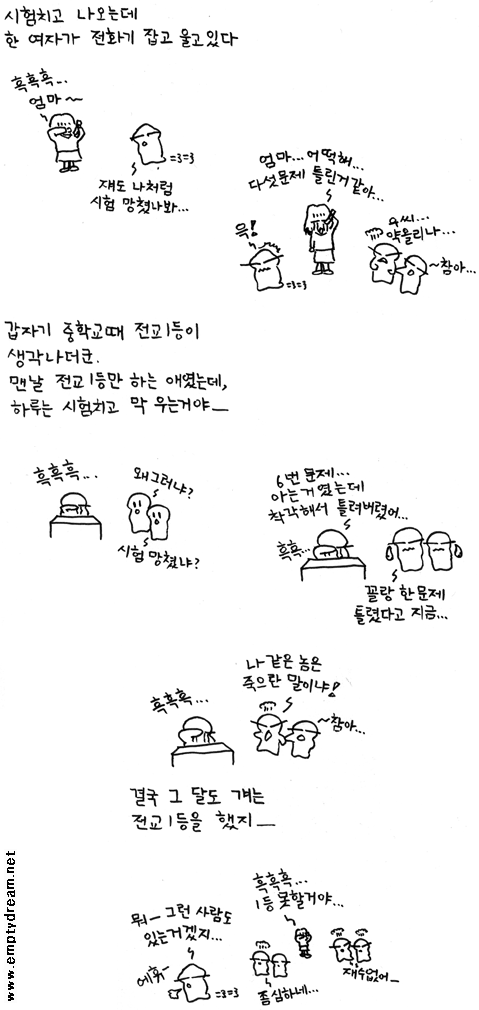 시험치고 나오는데
한 여자가 전화기 잡고 울고있다
흑흑흑...
엄마~
=3=3
쟤도 나처럼
시험 망쳤나봐...
엄마...어떡해...
다섯문제 틀린거같아...
윽!
=3=3
우씨...
약올리나...
~참아...
갑자기 중학교때 전교1등이
생각나더군.
맨날 전교1등만 하는 애였는데,
하루는 시험치고 막 우는거야—
흑흑흑...
왜그러냐?
시험 망쳤냐?
6번 문제...
아는거였는데
착각해서 틀려버렸어...
흑흑...
꼴랑 한문제
틀렸다고 지금...
흑흑흑...
나 같은 놈은
죽으란 말이냐!
~참아...
결국 그 달도 걔는
전교1등을 했지—
뭐— 그런 사람도
있는거겠지...
에휴-
=3=3
흑흑흑...
1등 못할거야...
좀심하네...
재수없어—
www.emptydream.net